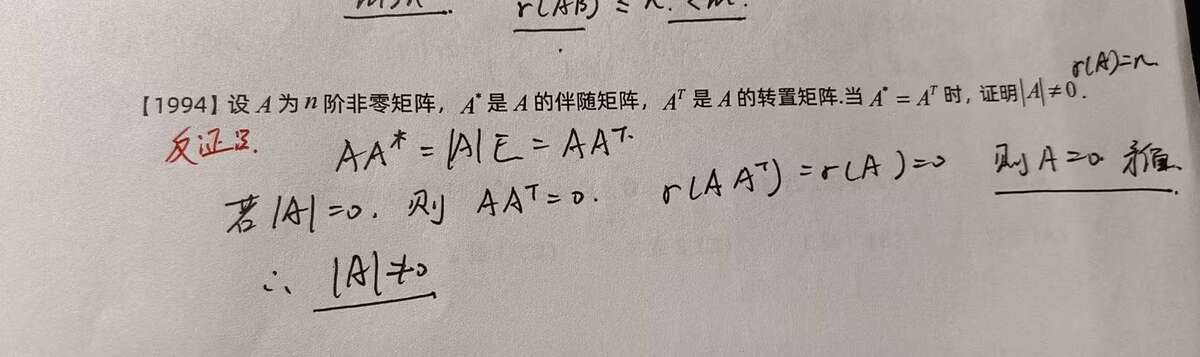 r(AB) = n. <m.
r(A)=n.
【1994】设 A 为 n 阶非零矩阵，A* 是 A 的伴随矩阵，Aᵀ 是 A 的转置矩阵.当 A* = Aᵀ 时，证明|A|≠0.
反证法. AA* = |A|E = AAᵀ.
若 |A|=0. 则 AAᵀ=0. r(AAᵀ)=r(A)=0 则A=0. 矛盾.
∴ |A|≠0